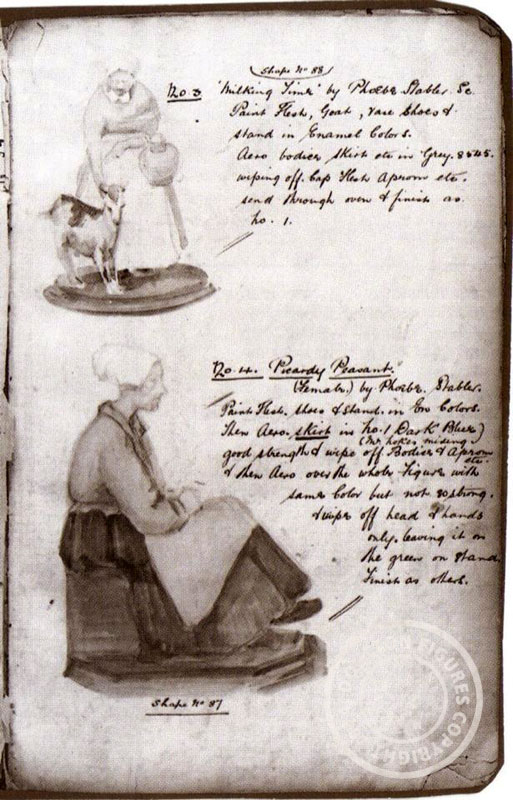 Shape No 88
No 3 "Milking Time" by Phoebe Stabler. Sc.
Paint Flesh, Goat, Vase Shoes &
stand in Enamel Colors.
Aero bodice Skirt etc in Grey. 8545.
wiping off. Cap Flesh Apron etc.
send through oven & finish as
No. 1.
No. 4. Picardy Peasant."
(Female.) by Phoebe. Stabler.
Paint Flesh. shoes & stand. in Colors.
Then Aero. skirt in No. 1 Dark Blue)
(Mr mixing
good strength & wipe off Bodice & Apron
etc.
& then Aero over the whole Figure with
same Color but not so strong.
& wipe off head & hands
only. leaving it on
the green on Stand
Finish as others.
Shape No 87
FIGURES COPYRIGHT